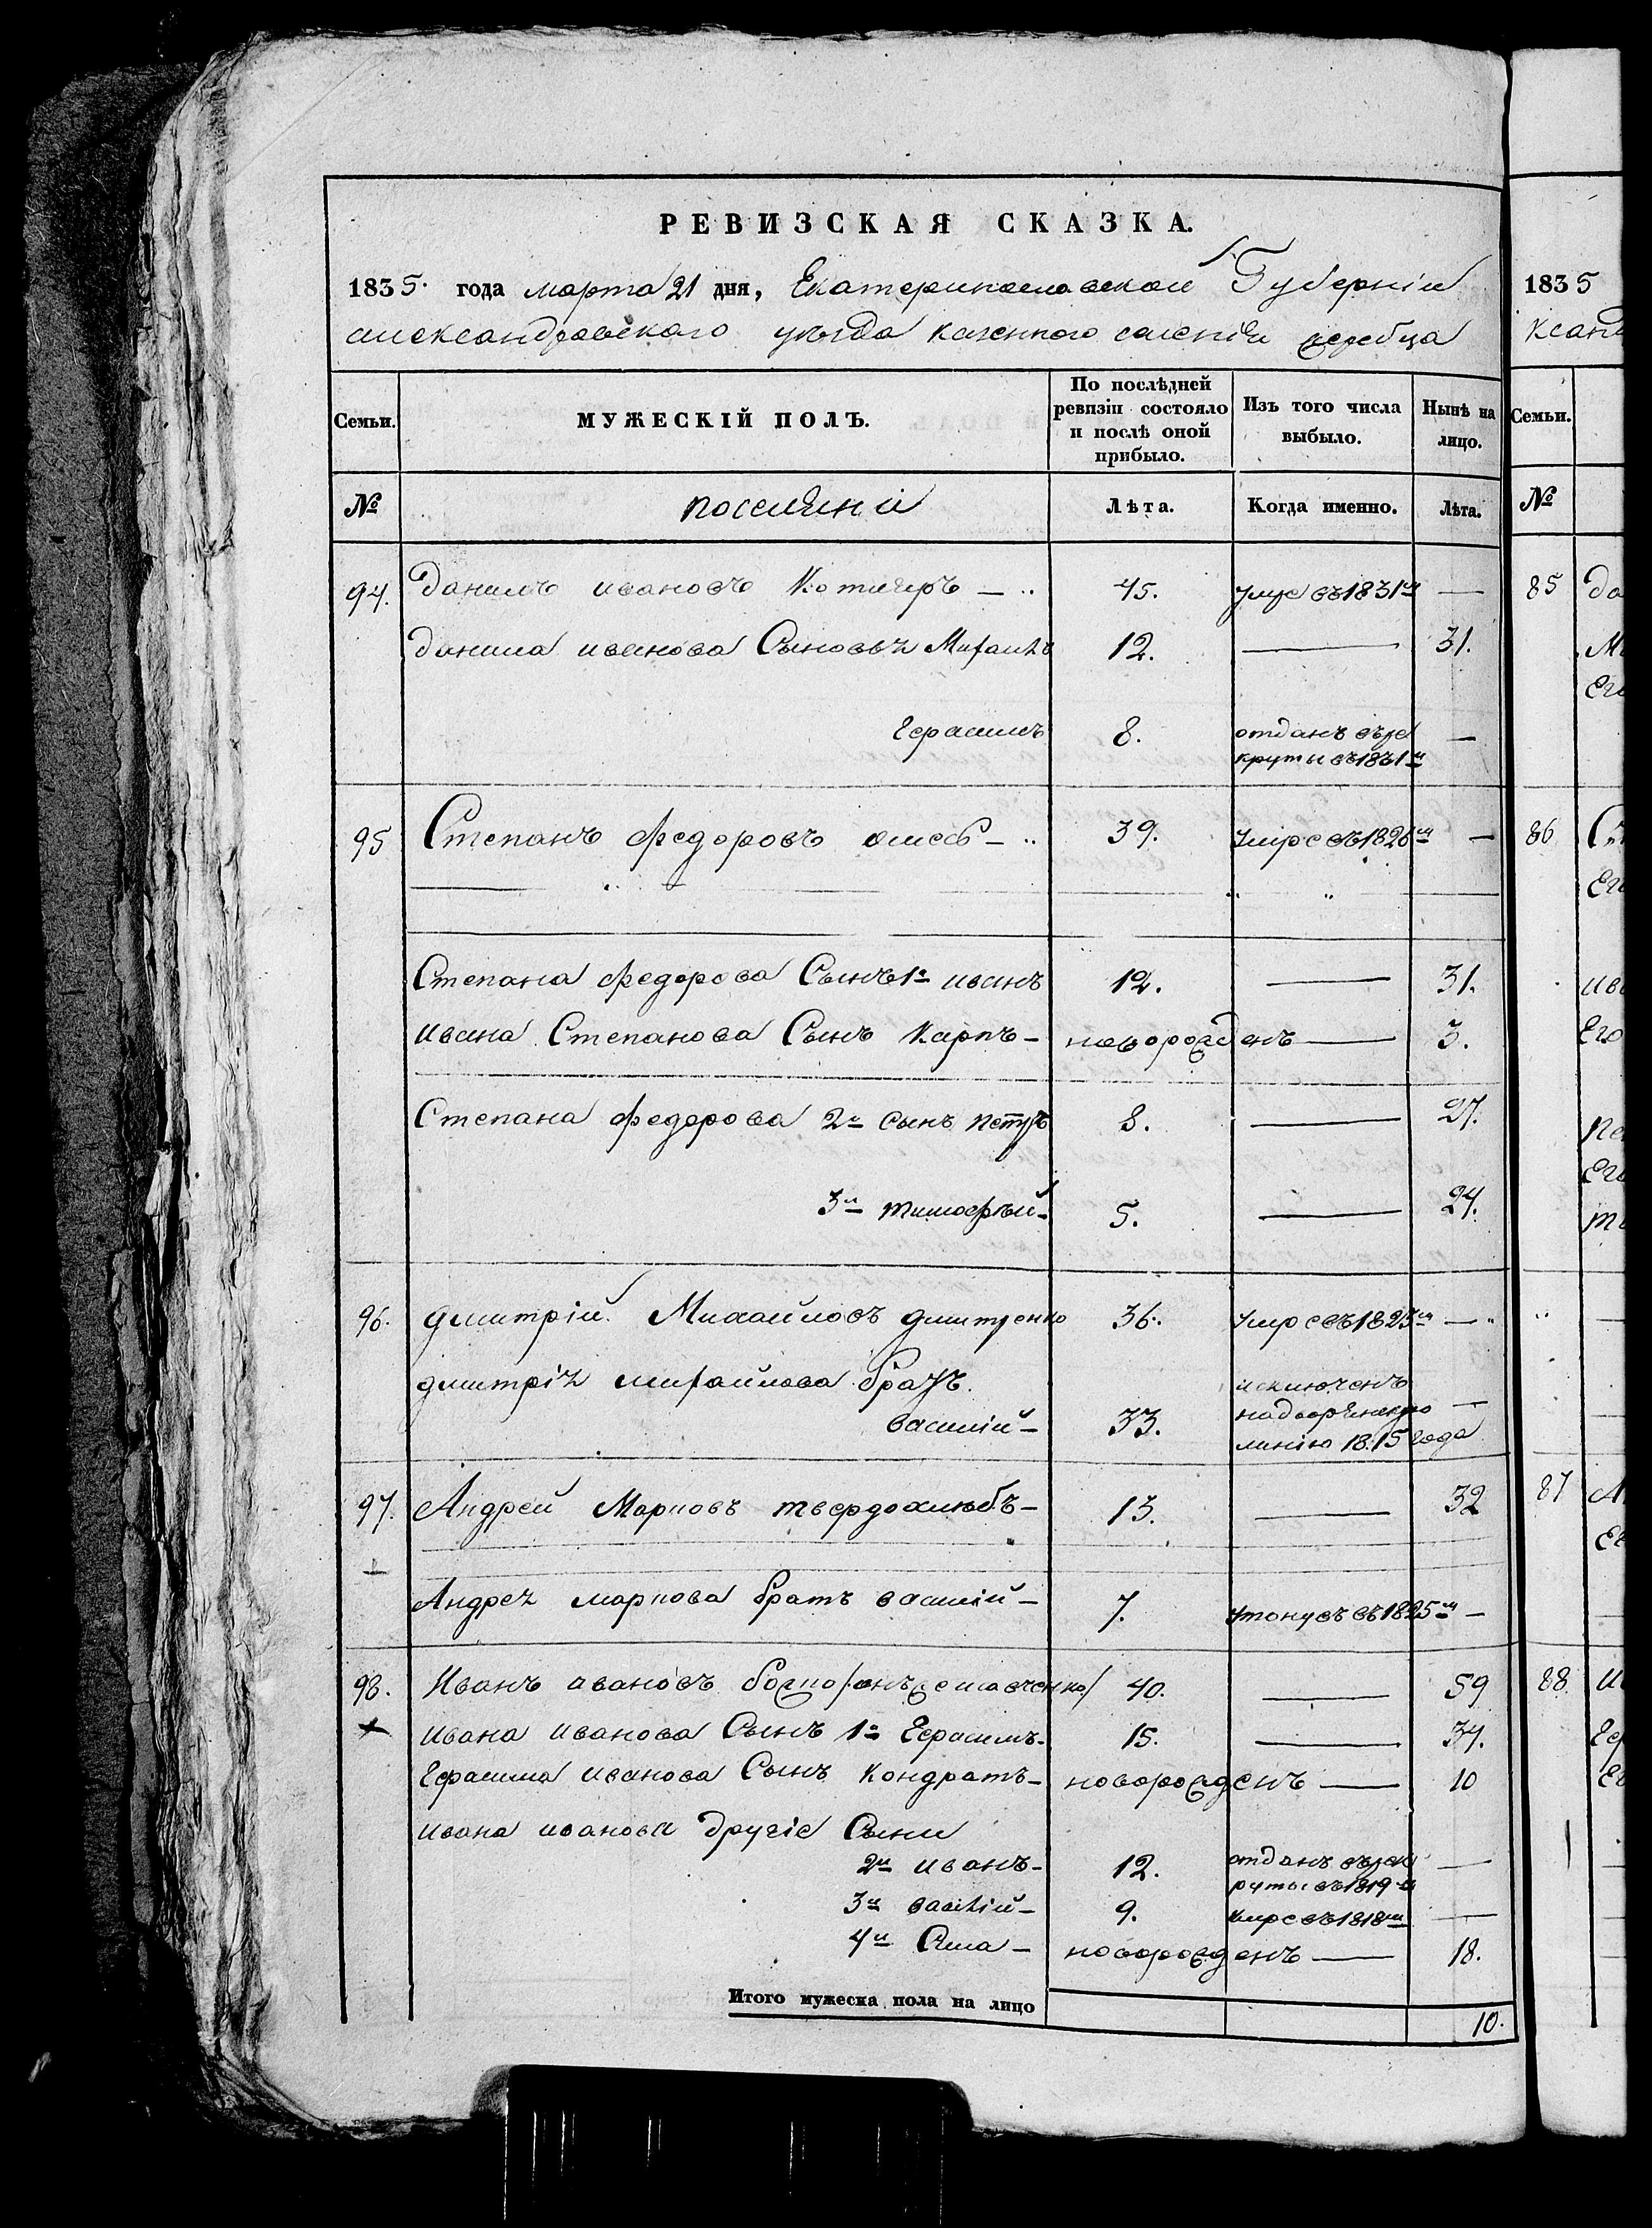 РЕВИЗСКАЯ СКАЗКА.
1835. года марта 21 дня, Екатеринославской Губерніи
александровского уѣзда казенного селенія жеребца
Семьи. МУЖЕСКІЙ ПОЛЪ. По послѣдней ревизіи состояло и послѣ оной прибыло. Изъ того числа выбыло. Нынѣ на лицо.
№ поселяни Лѣта. Когда именно. Лѣта.
94. данило ивановъ Котляръ — 45. умре въ 1831м —
данила иванова Сыновья Михаилъ 12. — 31.
Герасимъ 8. отданъ въ ре
круты въ 1831м —
95 Степанъ федоровъ — 39. умре въ 1826м —
Степана федорова Сынъ 1й иванъ 12. — 31.
ивана Степанова Сынъ Карпъ — новорожденъ — 3.
Степана федорова 2й сынъ петръ 8. — 27.
3й тимофѣй — 5. — 24.
96. дмитрій Михайловъ дмитренко 36. умре въ 1823м —
дмитрія михайлова братъ
василій — 33. исключенъ
линію 1815 года —
97. Андрей Марковъ твердохлѣбъ — 13. — 32
Андрея маркова братъ василій — 7. утонувъ въ 1825м —
98. Иванъ ивановъ 40. — 59
ивана иванова Сынъ 1й Герасимъ — 15. — 34.
Герасима иванова Сынъ Кондратъ — новорожденъ — 10
ивана иванова другіе Сыни
2й иванъ — 12. отданъ въ рек
руты въ 1819м —
3й василій — 9. умре въ 1818м —
4й Сила — новорожденъ — 18.
Итого мужеска пола на лицо 10.
1835
ксанд
Семьи.
№
85 да
Ми
Его
86 Ст
Его
ива
Его
пе
Его
ти
87 Ан
Ег
88 И
Гер
Ег